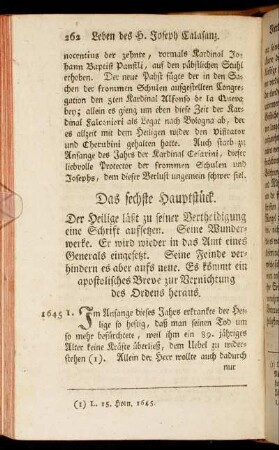 262 Leben des H. Joseph Calasanz.
nocentius der zehnte, vormals Kardinal Jo-
hann Baptist Panfili, auf den päbstlichen Stuhl
erhoben. Der neue Pabst fügte der in den Sa-
chen der frommen Schulen aufgestellten Congre-
gation den 5ten Kardinal Alfonso de la Queva
bey; allein es gieng um eben diese Zeit der Kar-
dinal Falconieri als Legat nach Bologna ab, der
es allzeit mit dem Heiligen wider den Visitator
und Cherubini gehalten hatte. Auch starb zu
Anfange des Jahrs der Kardinal Cesarini, dieser
liebvolle Protector der frommen Schulen und
Josephs, dem dieser Verlust ungemein schwer fiel.
Das sechste Hauptstück.
Der Heilige läßt zu seiner Vertheidigung
eine Schrift aufsetzen. Seine Wunder-
werke. Er wird wieder in das Amt eines
Generals eingesetzt. Seine Feinde ver-
hindern es aber aufs neue. Es kömmt ein
apostolisches Breve zur Vernichtung
des Ordens heraus.
1645 1. Im Anfange dieses Jahrs erkrankte der Hei-
lige so heftig, daß man seinen Tod um
so mehr befürchtete, weil ihm ein 89. jähriges
Alter keine Kräfte überließ, dem Uebel zu wider-
stehen (1). Allein der Herr wollte auch dadurch
nur
(1) L. 15. Horn. 1645.